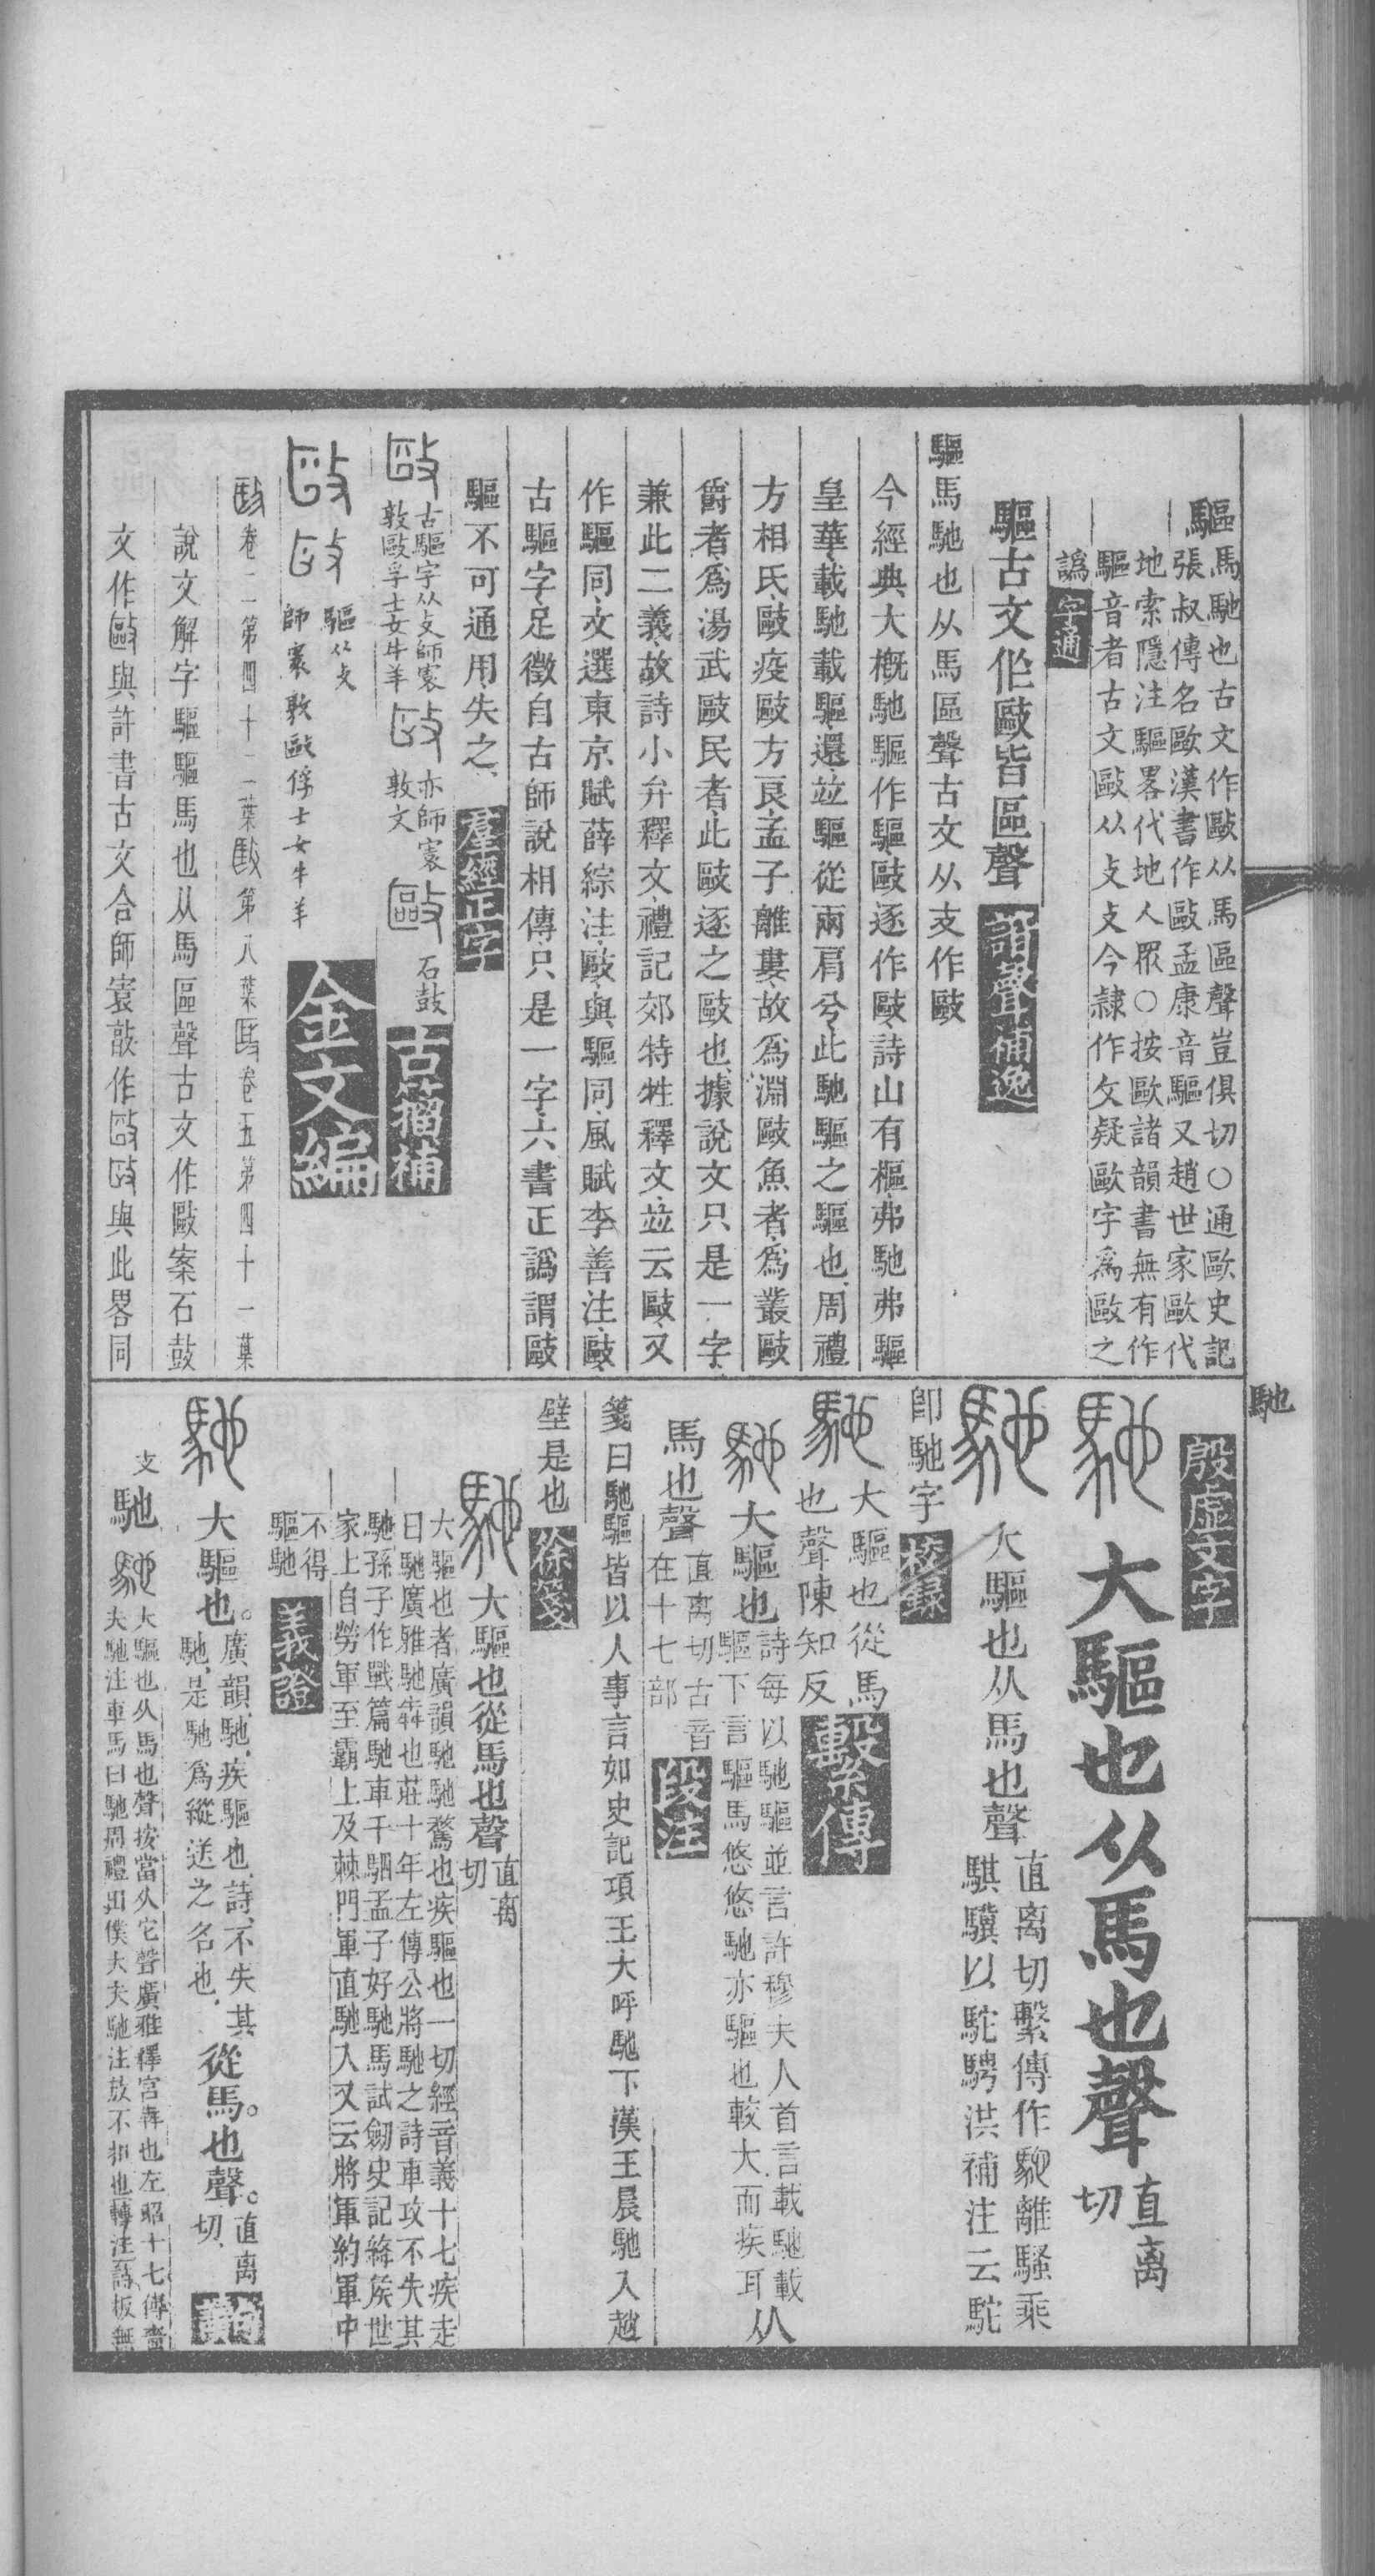 驅馬馳也古文作敺从馬區聲豈俱切○通歐史記
張叔傳名歐漢書作敺孟康音驅又趙世家歐代
地索隱注驅畧代地人眾○按歐諸韻書無有作
驅音者古文敺从攴攴今隷作攵疑歐字爲敺之
譌字通
驅古文作敺皆區聲諧聲補逸
驅馬馳也从馬區聲古文从支作敺
今經典大概馳驅作驅敺逐作敺詩山有樞弗馳弗驅
皇華載馳載驅還竝驅從兩肩兮此馳驅之驅也周禮
方相氏敺疫敺方良孟子離婁故爲淵敺魚者爲叢敺
爵者爲湯武敺民者此敺逐之敺也據說文只是一字
兼此二義故詩小弁釋文禮記郊特牲釋文竝云敺又
作驅同文選東京賦薛綜注敺與驅同風賦李善注敺
古驅字足徵自古師說相傳只是一字六書正譌謂敺
驅不可通用失之羣經正字
古驅字从攴師寰
敦敺孚士女牛羊
亦師寰
敦文
石鼓
古籀補
驅从攴
師寰敦敺俘士女牛羊
金文編
卷二第四十一葉第八葉卷五第四十一葉
說文解字驅驅馬也从馬區聲古文作敺案石鼓
文作與許書古文合師寰敼作與此畧同
馳
殷虛文字
馳大驅也从馬也聲直离切
馳大驅也从馬也聲直离切繫傳作馳離騷乘
騏驥以駝騁洪補注云駝
卽馳字校録
馳大驅也從馬
也聲陳知反繫傳
馳大驅也詩每以馳驅並言許穆夫人首言載馳載
驅下言驅馬悠悠馳亦驅也較大而疾耳从
馬也聲直离切古音
在十七部段注
箋曰馳驅皆以人事言如史記項王大呼馳下漢王晨馳入趙
壁是也徐箋
馳大驅也從馬也聲直离切
大驅也者廣韻馳馳騖也疾驅也一切經音義十七疾走
曰馳廣雅馳犇也莊十年左傳公將馳之詩車攻不失其
馳孫子作戰篇馳車千駟孟子好馳馬試劒史記絳矦世
家上自勞軍至霸上及棘門軍直馳入又云將軍約軍中
不得
驅馳義證
馳大驅也廣韻馳疾驅也詩不失其
馳是馳爲縱送之名也從馬也聲直离切
支
馳大驅也从馬也聲按當从它聲廣雅釋宮犇也左昭十七傳嗇
夫馳注車馬曰馳周禮出僕大夫馳注放不扣也轉注詩板無